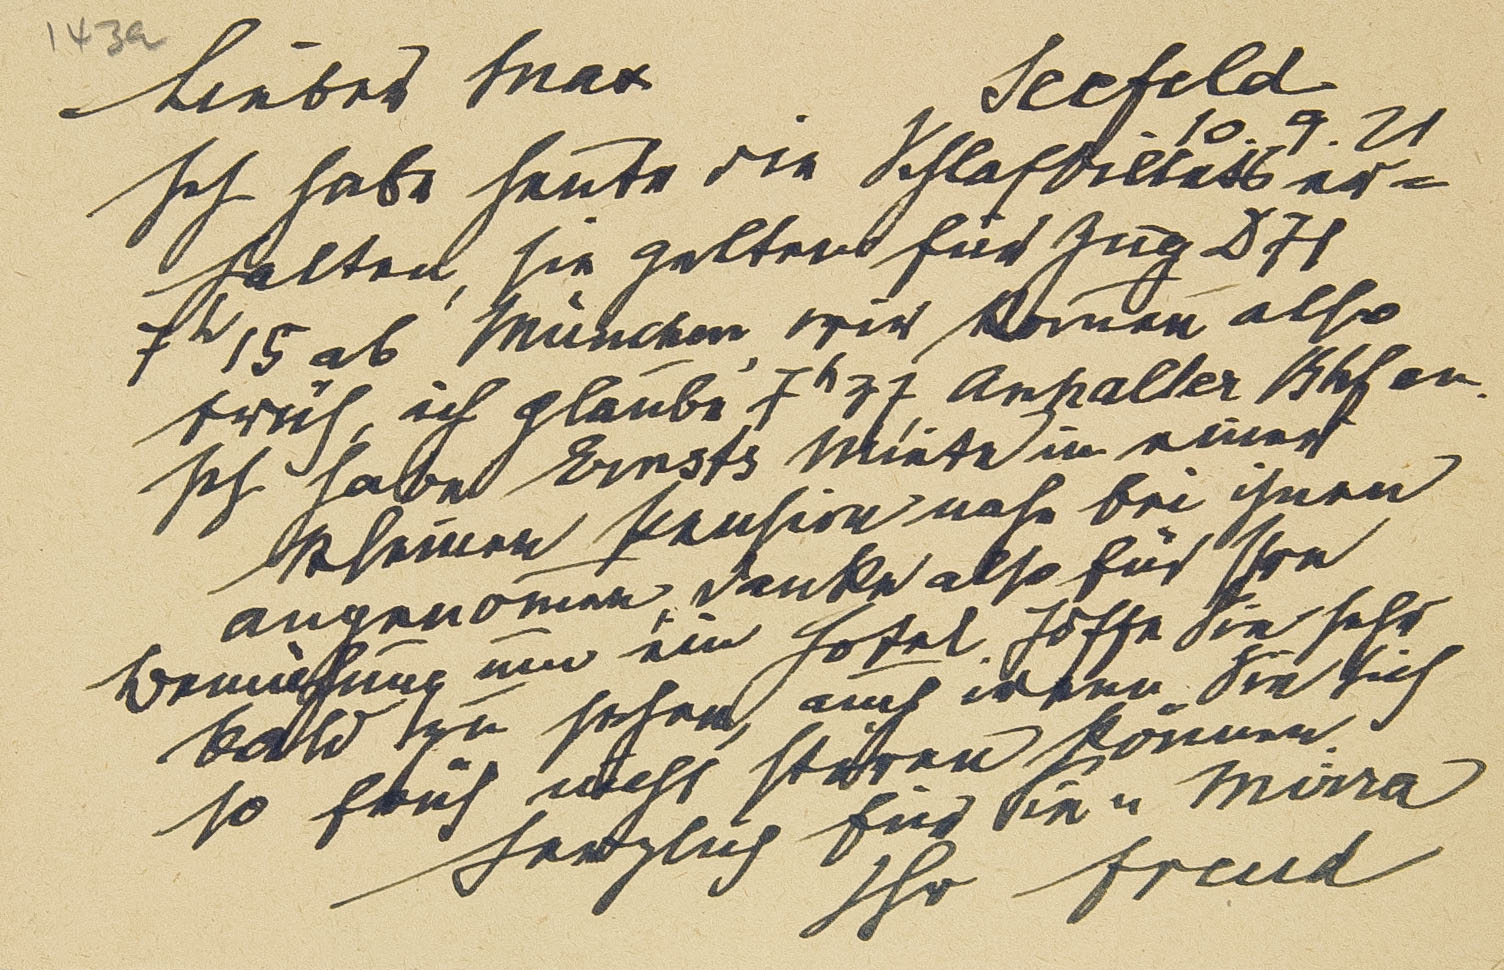 143a
Lieber Max
Seefeld
10. 9. 21
Ich habe heute die Schlafbillets er=
halten, sie gelten für Zug D 71
7h 15 ab München, wir kom̄en also
früh, ich glaube 7h 37, Anhalter Bhf an.
Ich habe Ernsts Miete in einer
kleinen Pension nahe bei ihnen
angenom̄en, danke also für Ihre
Bemühung um ein Hotel. Hoffe Sie sehr
bald zu sehen, auch wenn Sie sich
so früh nicht stören können.
Herzlich für Sie u Mirra
Ihr Freud